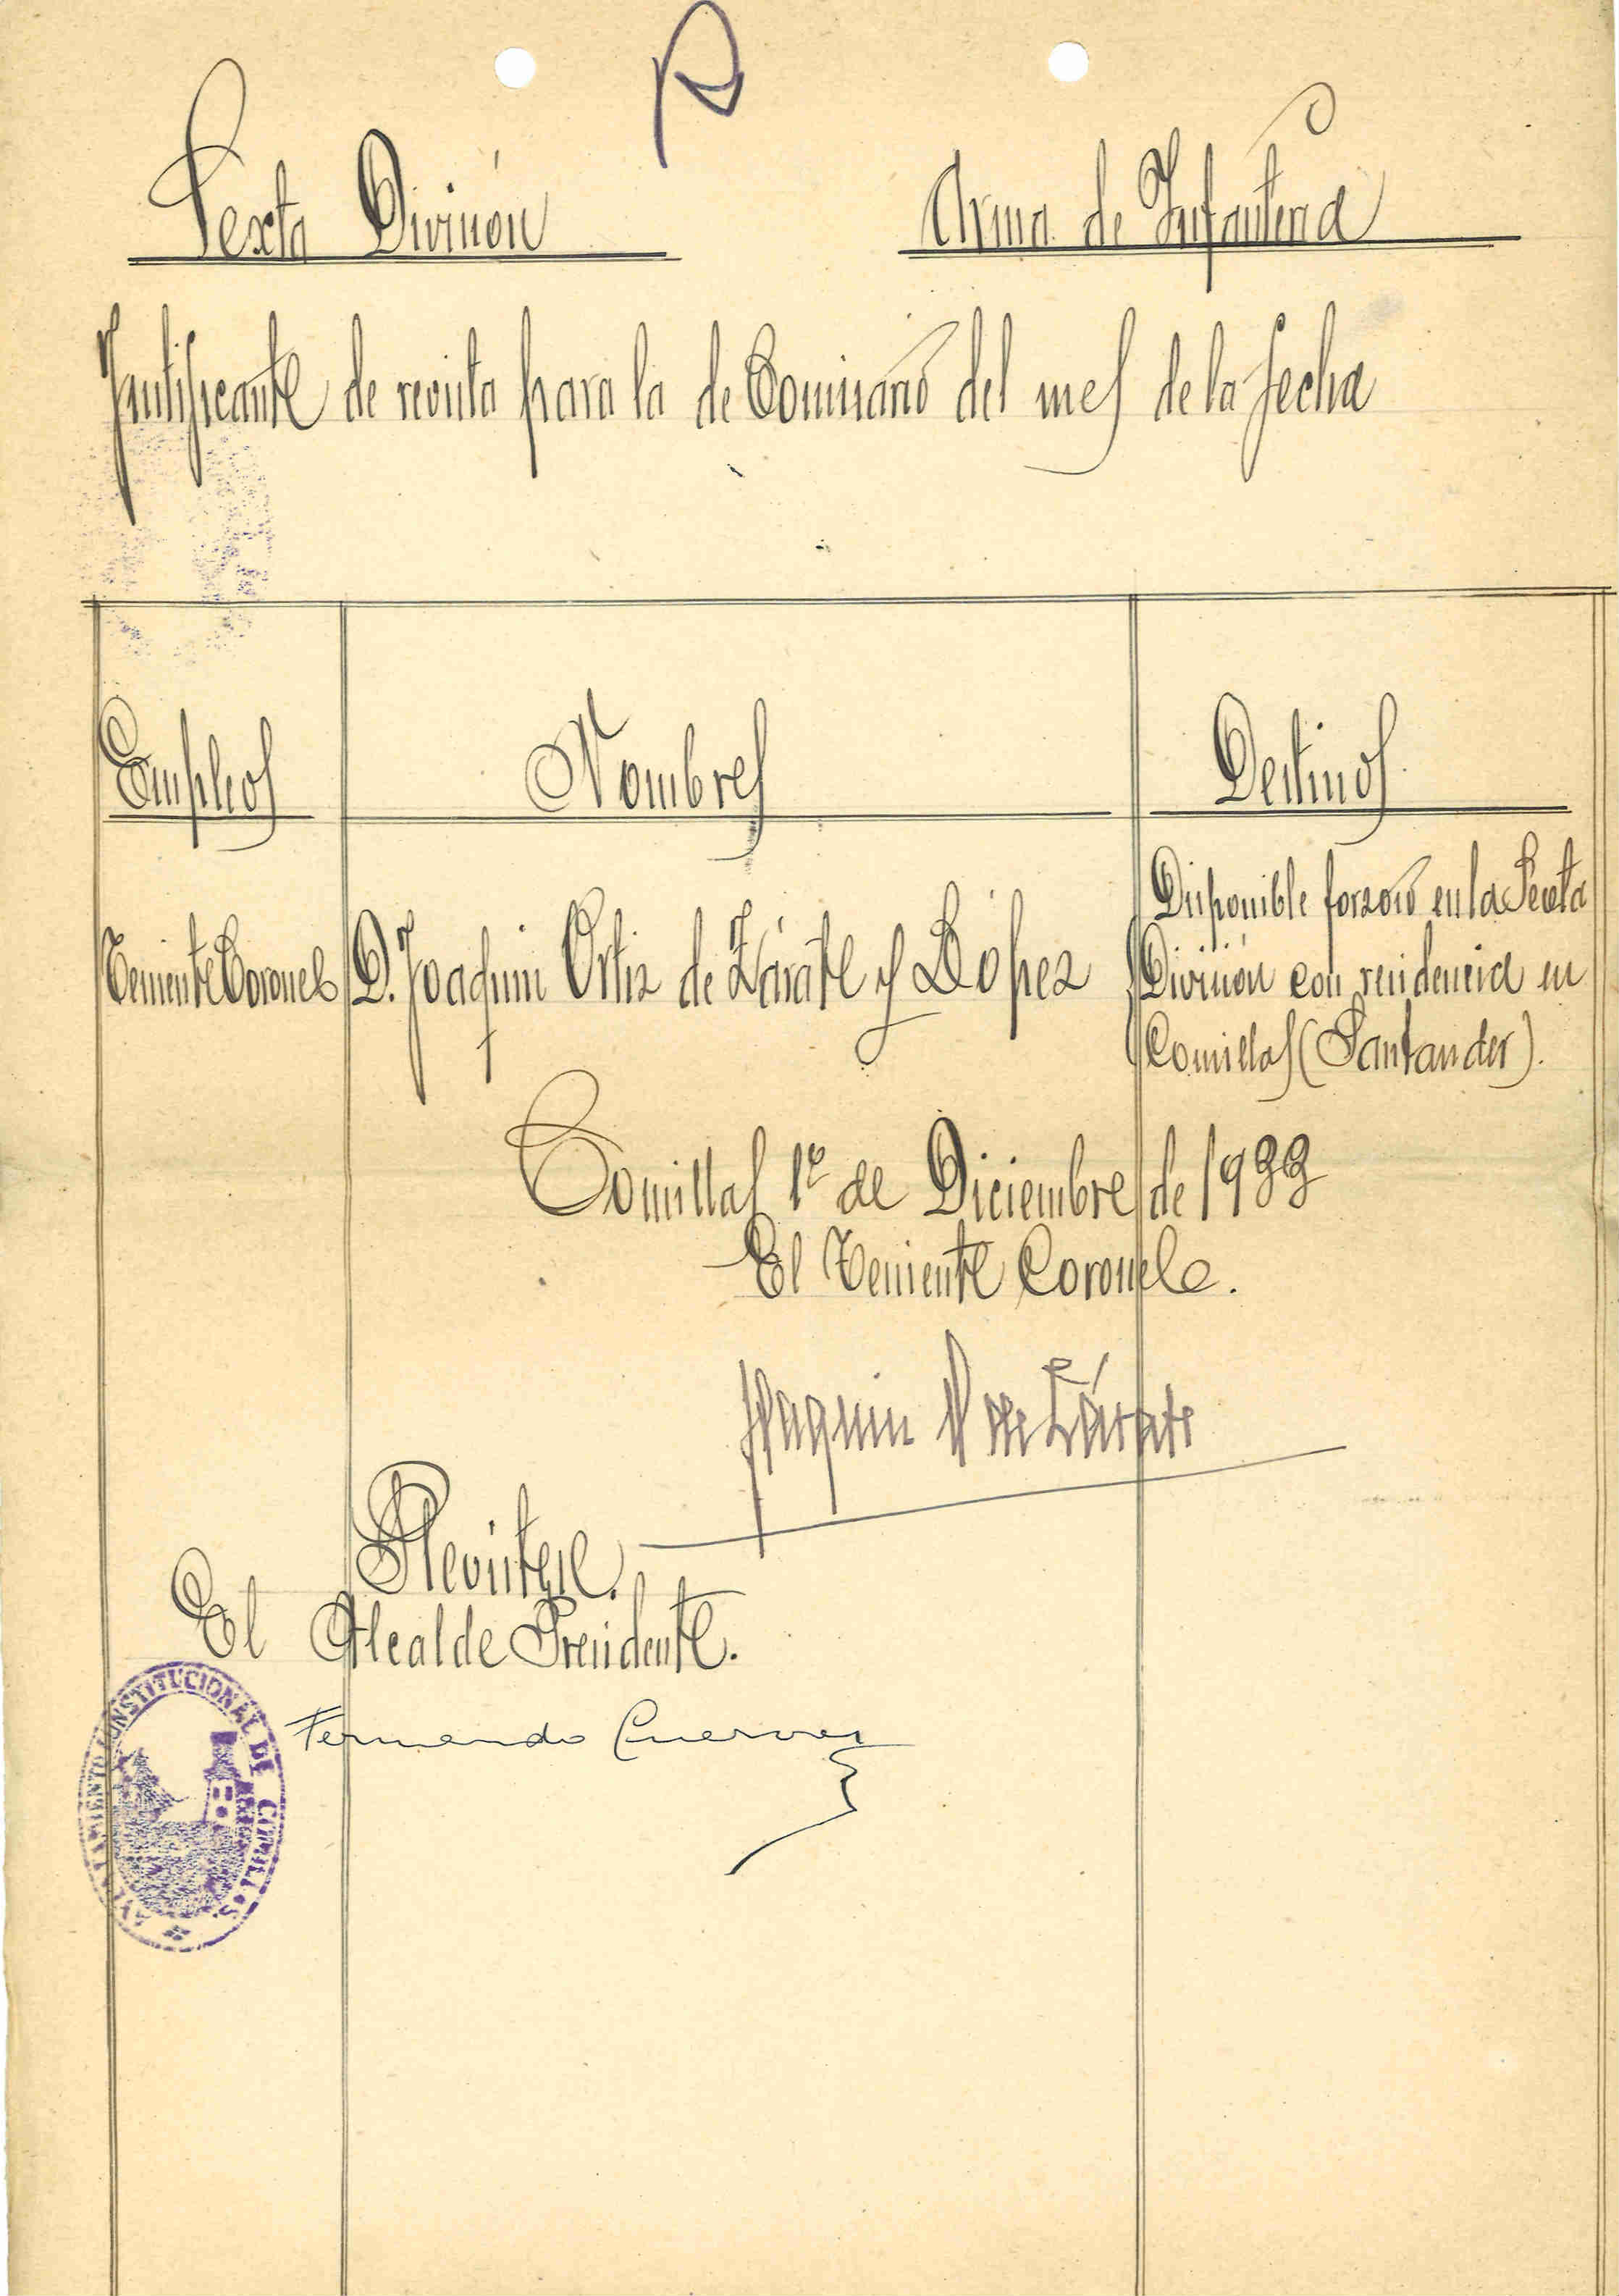 Sexta División
Arma de Infantería
Justificante de revista para la de Comisario del mes de la fecha
Empleos
Nombres
Destinos.
Teniente Coronel
D. Joaquin Ortiz de Zárate y López
Disponible forzoso en la Sexta
División con residencia en
Comillas (Santander).
Comillas 1º de Diciembre de 1933
El Teniente Coronel.
Joaquin O de Zárate
Revistese.
El Alcalde Presidente.
Fernando
AYUNTAMIENTO CONSTITUCIONAL DE COMILLAS